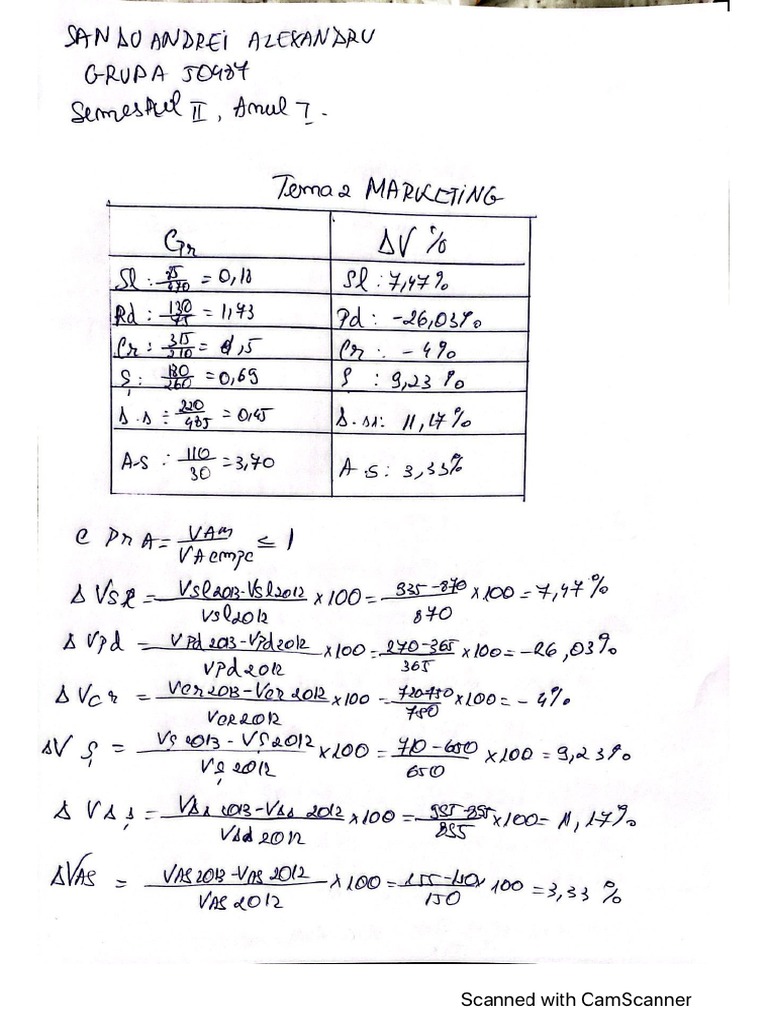 SANDU ANDREI ALEXANDRU
GRUPA 50487
Semestrul II, Anul I.
Tema 2 MARKETING
Cr ΔV %
Sl : = 0,18 Sl : 7,47%
Rd : 130/75 = 1,73 Pd : -26,03%
Cr : 315/210 = 1,5 Cr : -4%
Ș : 180/260 = 0,69 Ș : 9,23%
220/485 = 0,45 11,17%
A-S : 110/30 = 3,70 A-S : 3,33%
C Pr A = VAm/VA cmpc ≤ 1
ΔVSl = VSl2013-VSl2012/VSl2012 × 100 = 935-870/870 × 100 = 7,47%
ΔVpd = VPd2013-VPd2012/VPd2012 × 100 = 270-365/365 × 100 = -26,03%
ΔVcr = VCr2013-VCr2012/VCR2012 × 100 = 720-750/750 × 100 = -4%
ΔVș = VȘ2013-VȘ2012/VȘ2012 × 100 = 710-650/650 × 100 = 9,23%
× 100 = × 100 = 11,17%
ΔVAS = VAS2013-VAS2012/VAS2012 × 100 = 155-150/150 100 = 3,33 %
Scanned with CamScanner